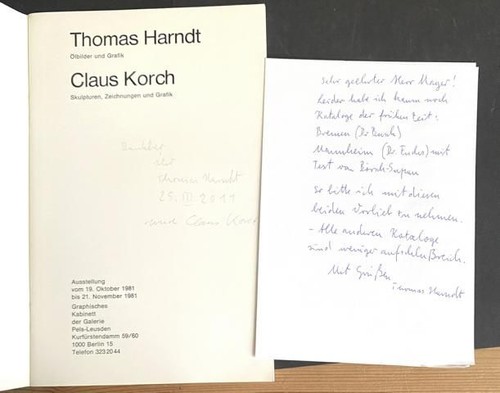 Thomas Harndt
Ölbilder und Grafik
Claus Korch
Skulpturen, Zeichnungen und Grafik
Thomas Harndt
25. III 2011
und Claus Korch
Ausstellung
vom 19. Oktober 1981
bis 21. November 1981
Graphisches
Kabinett
der Galerie
Pels-Leusden
Kurfürstendamm 59/60
1000 Berlin 15
Telefon 323 20 44
Sehr geehrter Herr Mayer!
Leider habe ich kaum noch
Kataloge der frühen Zeit:
Bremen (Dr. Busch)
Mannheim (Dr. Fuchs) mit
Text von Börsch-Supan
so bitte ich mit diesen
beiden Vorlieb zu nehmen.
- Alle anderen Kataloge
sind weniger aufschlußreich.
Mit Grüßen
Thomas Harndt